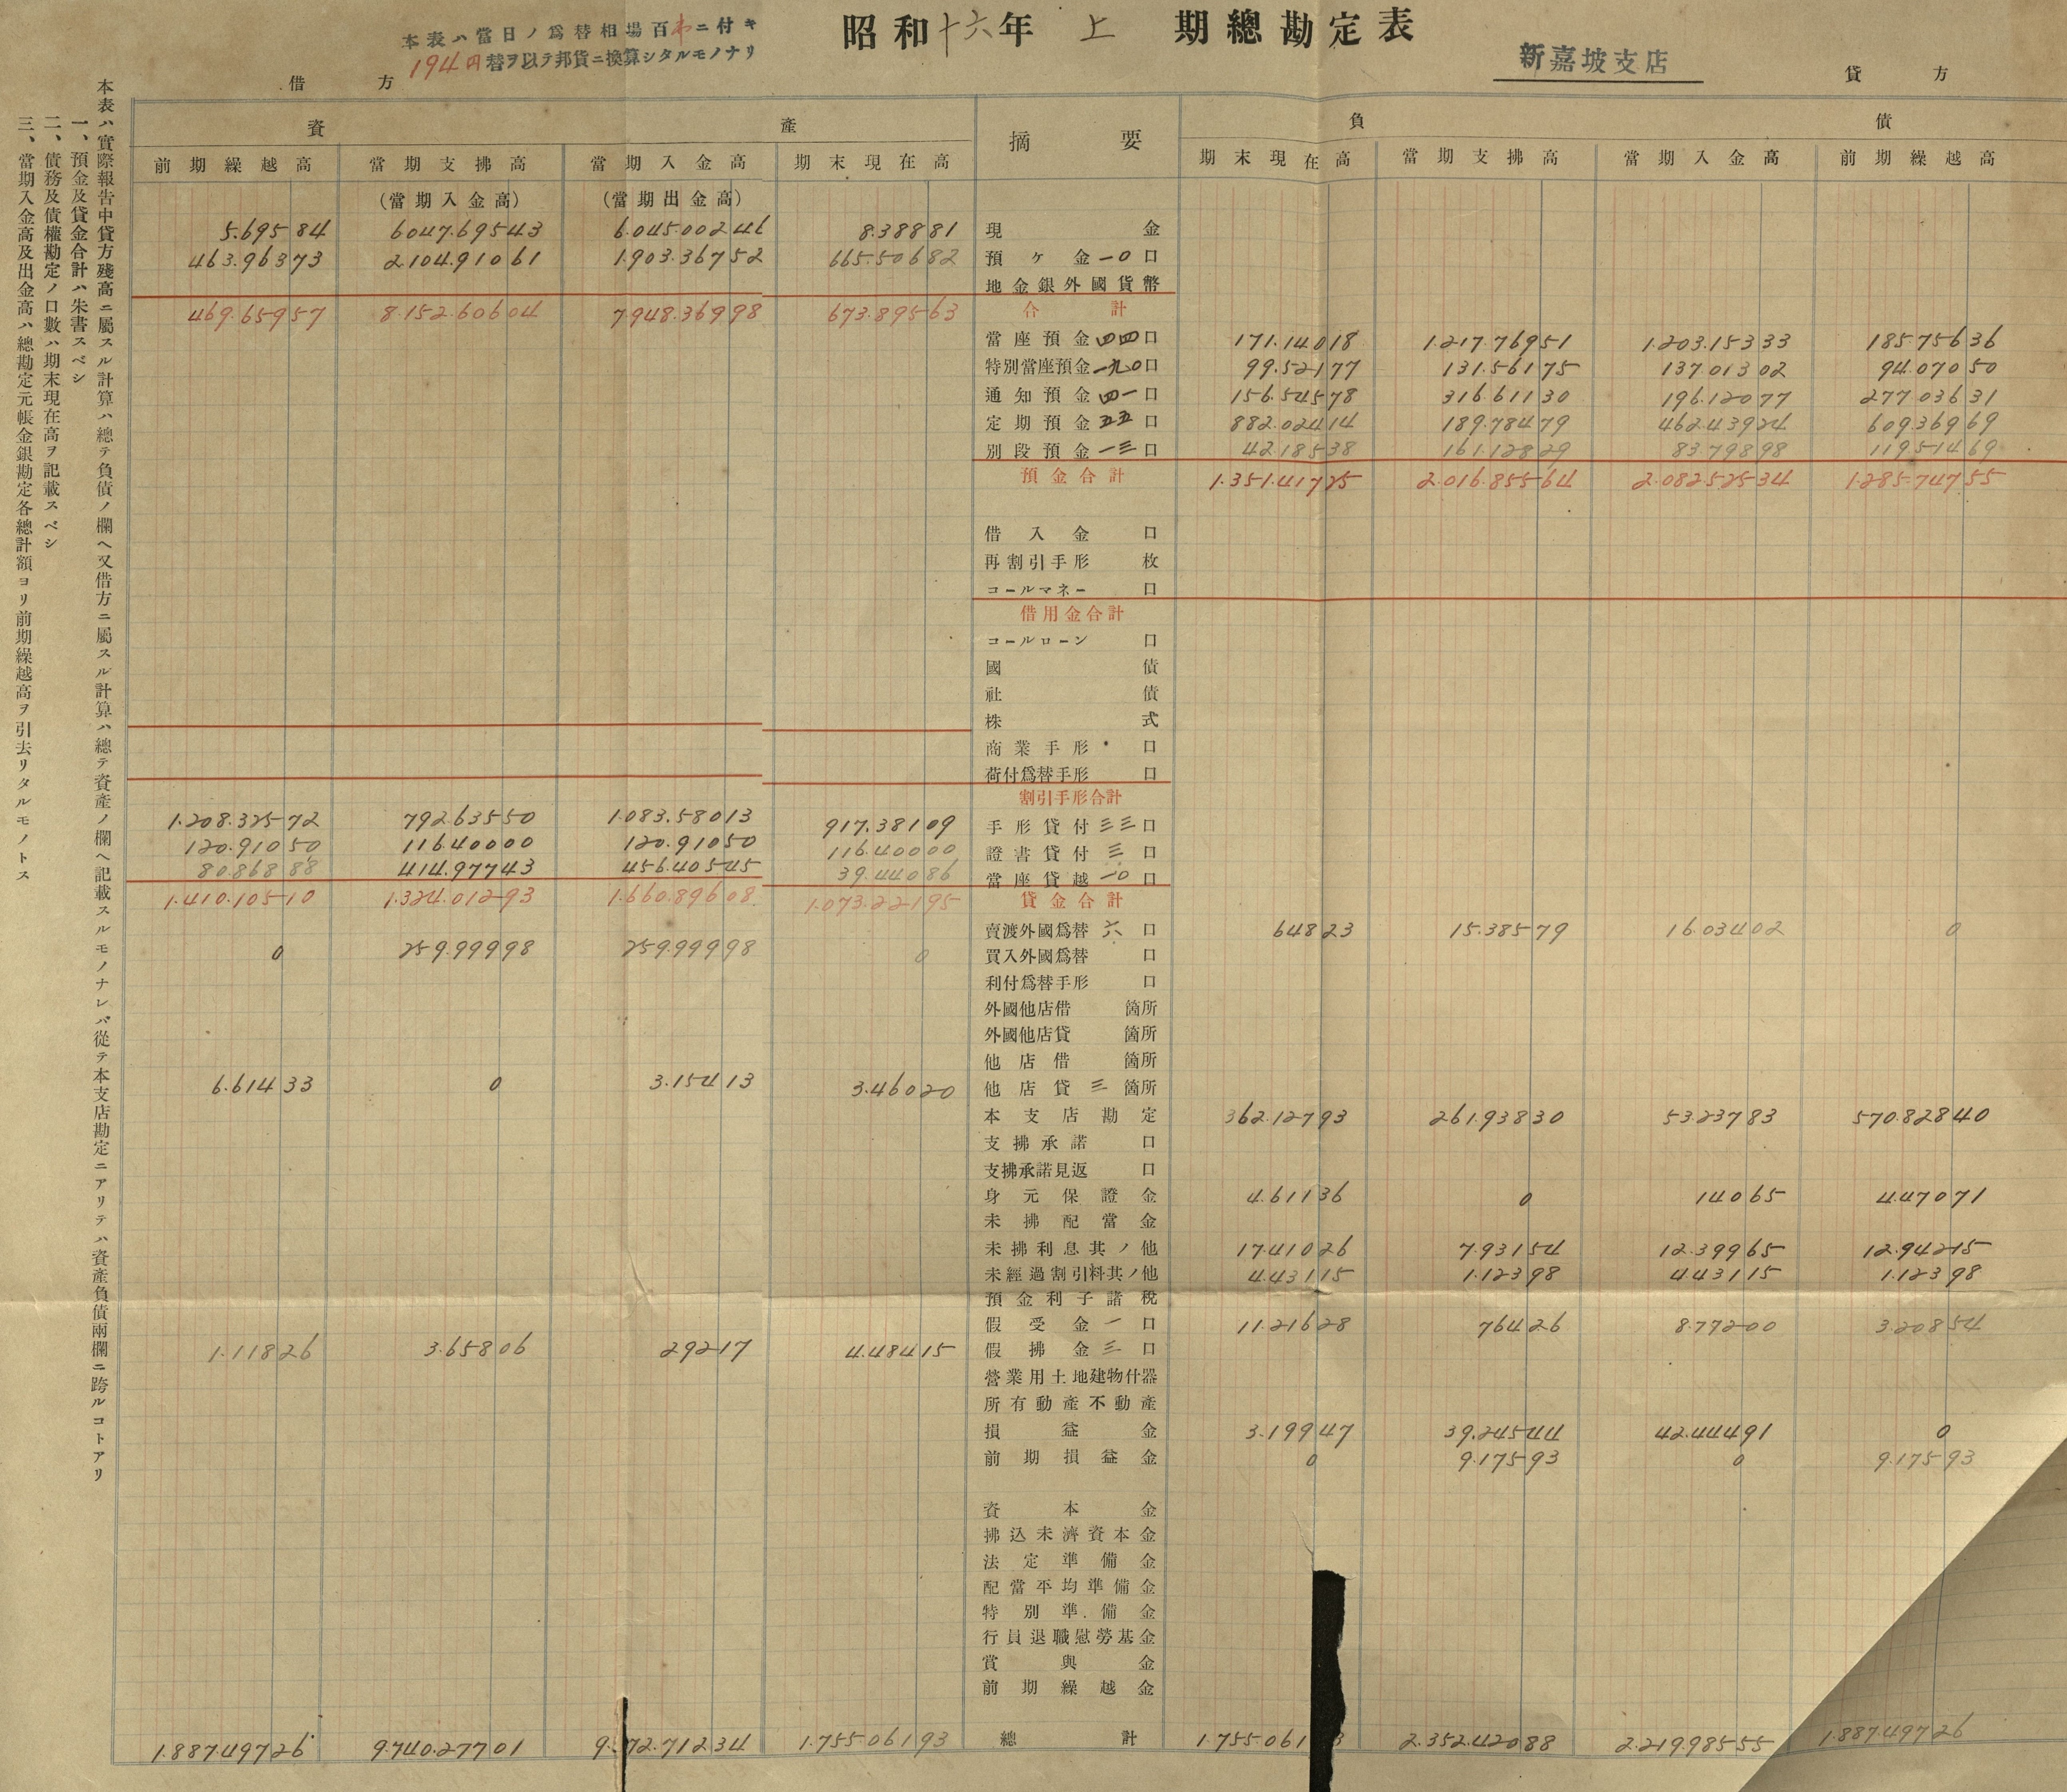 昭和十六年 上 期總勘定表
本表ハ當日ノ爲替相場百弗ニ付キ
194円替ヲ以テ邦貨ニ換算シタルモノナリ
新嘉坡支店
借方 貸方
資產 摘要 負債
前期繰越高 當期支拂高 當期入金高 期末現在高 期末現在高 當期支拂高 當期入金高 前期繰越高
(當期入金高) (當期出金高)
5.695 84 6047.695 43 6.045.002 46 8.388 81 現金
463.963 73 2.104.910 61 1.903.367 52 665.506 82 預ケ金一〇口
地金銀外國貨幣
469.659 57 8.152.606 04 7.948.369 98 673.895 63 合計
當座預金四四口 171.140 18 1.217.769 51 1.203.153 33 185.756 36
特別當座預金一九〇口 99.521 77 131.561 75 137.013 02 94.070 50
通知預金四一口 156.545 78 316.611 30 196.120 77 277.036 31
定期預金五五口 882.024 14 189.784 79 462.439 24 609.369 69
別段預金一三口 42.185 38 161.128 29 83.798 98 119.514 69
預金合計 1.351.417 25 2.016.855 64 2.082.525 34 1.285.747 55
借入金 口
再割引手形 枚
コールマネー 口
借用金合計
コールローン 口
國債
社債
株式
商業手形 口
荷付爲替手形 口
割引手形合計
1.208.325 72 792.635 50 1.083.580 13 917.381 09 手形貸付三三口
120.910 50 116.400 00 120.910 50 116.400 00 證書貸付三口
80.868 88 414.977 43 456.405 45 39.440 86 當座貸越一〇口
1.410.105 10 1.324.012 93 1.660.896 08 1.073.221 95 貸金合計
賣渡外國爲替六口 648 23 15.385 79 16.034 02 0
0 259.999 98 259.999 98 0 買入外國爲替 口
利付爲替手形 口
外國他店借 箇所
外國他店貸 箇所
他店借 箇所
6.614 33 0 3.154 13 3.460 20 他店貸三箇所
本支店勘定 362.127 93 261.938 30 53.237 83 570.828 40
支拂承諾 口
支拂承諾見返 口
身元保證金 4.611 36 0 140 65 4.470 71
未拂配當金
未拂利息其ノ他 17.410 26 7.931 54 12.399 65 12.942 15
未經過割引料其ノ他 4.431 15 1.123 98 4.431 15 1.123 98
預金利子諸稅
假受金一口 11.216 28 764 26 8.772 00 3.208 54
1.118 26 3.658 06 292 17 4.484 15 假拂金三口
營業用土地建物什器
所有動產不動產
損益金 3.199 47 39.245 44 42.444 91 0
前期損益金 0 9.175 93 0 9.175 93
資本金
拂込未濟資本金
法定準備金
配當平均準備金
特別準備金
行員退職慰勞基金
賞與金
前期繰越金
1.887.497 26 9.740.277 01 9. 72.712 34 1.755.061 93 總計 1.755.061 3 2.352.420 88 2.219.985 55 1.887.497 26
本表ハ實際報告中貸方殘高ニ屬スル計算ハ總テ負債ノ欄ヘ又借方ニ屬スル計算ハ總テ資產ノ欄ヘ記載スルモノナレバ從テ本支店勘定ニアリテハ資產負債兩欄ニ跨ルコトアリ
一、預金及貸金合計ハ朱書スベシ
二、債務及債權勘定ノ口數ハ期末現在高ヲ記載スベシ
三、當期入金高及出金高ハ總勘定元帳金銀勘定各總計額ヨリ前期繰越高ヲ引去リタルモノトス